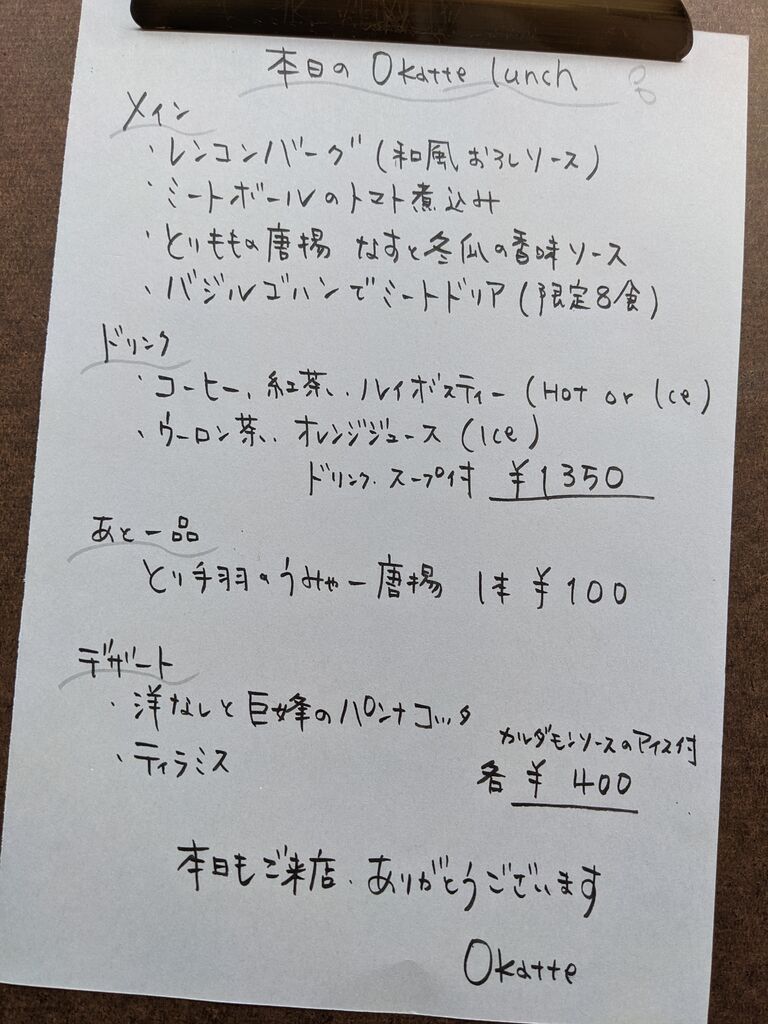 本日の Okatte lunch
メイン
・レンコンバーグ (和風おろしソース)
・ミートボールのトマト煮込み
・とりももの唐揚 なすと冬瓜の香味ソース
・バジルゴハンでミートドリア (限定8食)
ドリンク
・コーヒー、紅茶、ルイボスティー (Hot or Ice)
・ウーロン茶、オレンジジュース (Ice)
ドリンク・スープ付 ¥1350
あと一品
とり手羽のうみゃー唐揚 1本 ¥100
デザート
・洋なしと巨峰のパンナコッタ
・ティラミス
カルダモンソースのアイス付
各 ¥400
本日もご来店、ありがとうございます
Okatte